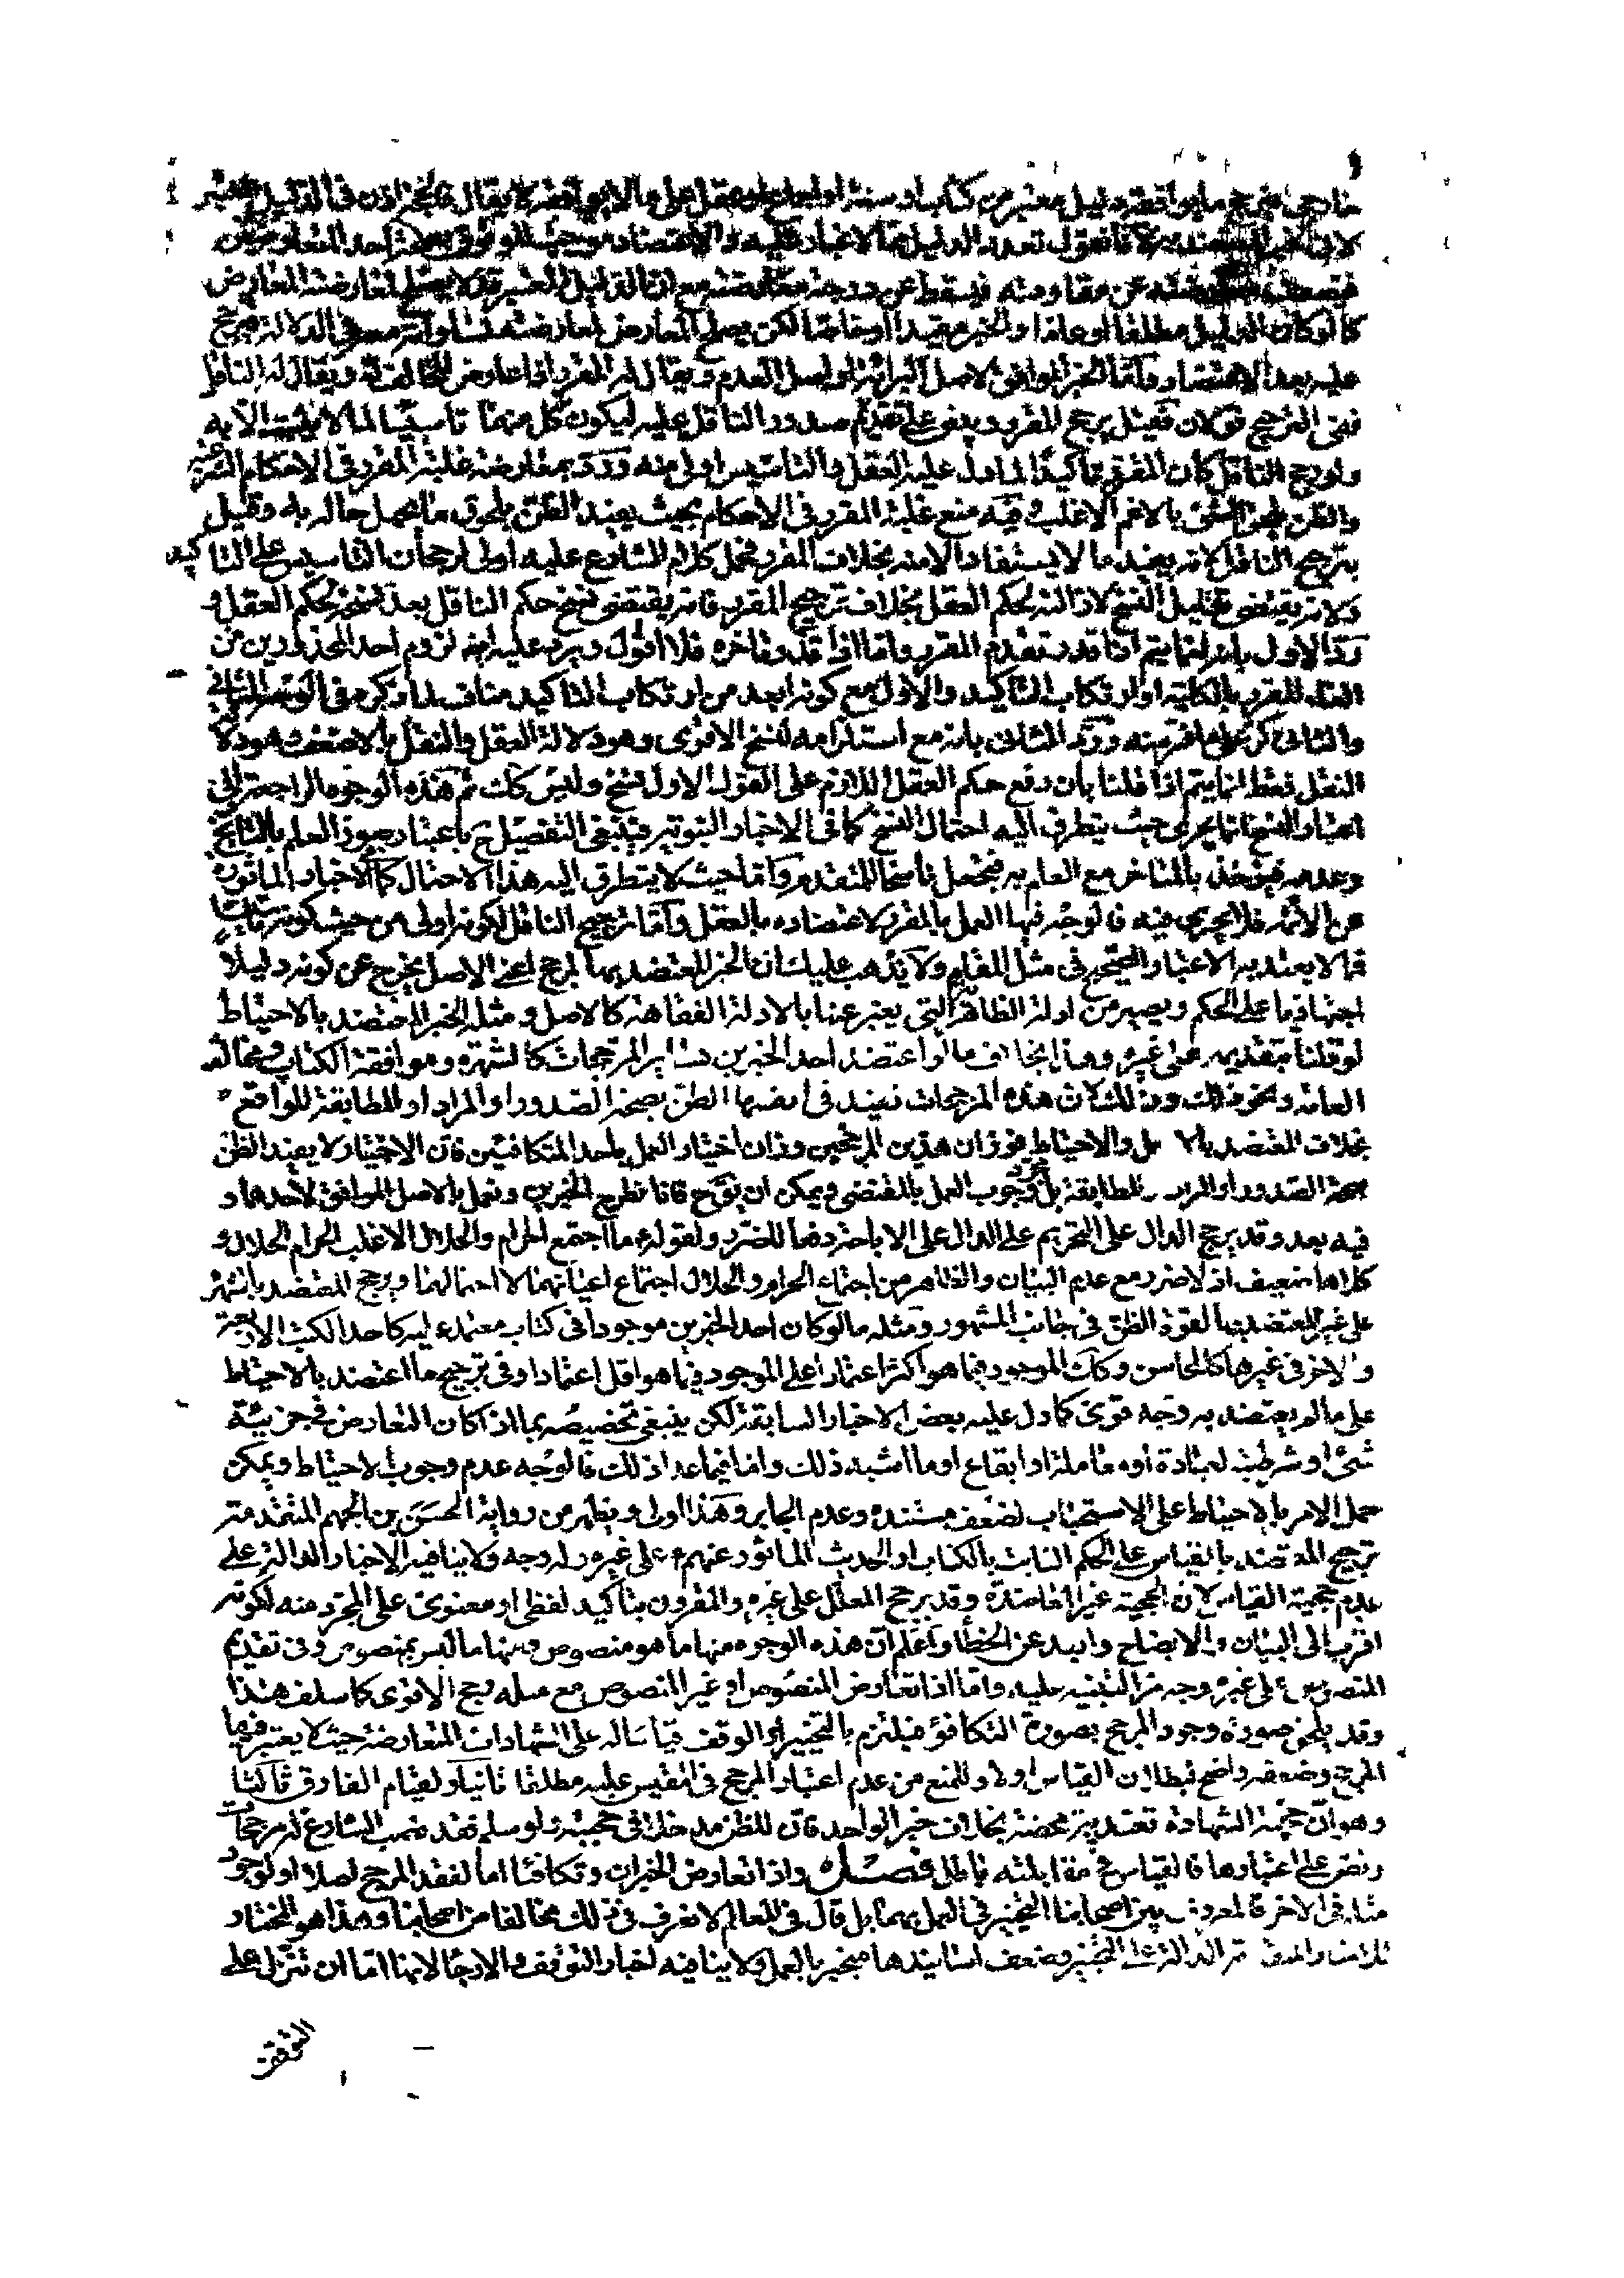 خارجى فيرجح ما يوافقه دليل معتبر من كتاب او سنة او اجماع او عقل على ما لا يوافقه لا يقال فالحجة اذن فى الدليل المعتبر
لان الخبر لانا نقول تعدد الدليل مما لا غبار عليه والاعتضاد موجب للوثوق باحد المتعارضين
فيضعف عن مقاومته فيسقط عن درجة معارضته مع ان الدليل المعتبر قد لا يصلح لمعارضة المعارض
كما لو كان الدليل مطلقا او عاما والخبر مقيدا او خاصا لكن يصلح المعارض لمعارضته لتساويه معه فى الدلالة فيرجح
عليه بعد الاعتضاد واما الخبر الموافق لاصل البرائة او لاصل العدم ويقال له المقرر اذا عارض المخالف له ويقال له الناقل
ففى الترجيح قولان فقيل يرجح المقرر ويبنى على تقديم صدور الناقل عليه ليكون كل منهما تاسيسا لما لا يثبت الا به
ولو رجح الناقل كان المقرر تاكيدا لما دل عليه العقل والتاسيس اولى منه ورد بمعارضة غلبة المقرر فى الاحكام الشرعية
والظن يلحق الشئ بالاعم الاغلب وفيه منع غلبة المقرر فى الاحكام بحيث يفيد الظن بلحوق ما يجهل حاله به وقيل
بترجيح الناقل لانه يفيد ما لا يستفاد الا منه بخلاف المقرر فحمل كلام الشارع عليه اولى لرجحان التاسيس على التاكيد
ولانه يقتضى تقليل النسخ لازالته لحكم العقل بخلاف ترجيح المقرر فانه يقتضى نسخ حكم الناقل بعد نسخه لحكم العقل و
رد الاول بانه انما يتم اذا قدر تقدم المقرر واما اذا قدر تاخره فلا اقول ويرد عليه انه لزوم احد المحذورين من
الغاء المقرر بالكلية او ارتكاب التاكيد والاول مع كونه ابعد من ارتكاب التاكيد مناف لما ذكره فى الوجه الثانى
والثانى كر على ما فر منه ورد الثانى بانه مع استلزامه لنسخ الاقوى وهو دلالة العقل والنقل بالاضعف وهو دلالة
النقل فقط انما يتم اذا قلنا بان رفع حكم العقل اللازم على القول الاول نسخ وليس كك ثم هذه الوجوه الراجعة الى
اعتبار النسخ انما يجرى حيث يتطرق اليه احتمال النسخ كما فى الاخبار النبوية فينبغى التفصيل ح باعتبار صورة العلم بالتاريخ
وعدمه فيؤخذ بالمتاخر مع العلم به فيجعل ناسخا للمتقدم واما حيث لا يتطرق اليه هذا الاحتمال كما الاخبار الماثورة
عن الائمه فلا يجرى فيه فالوجه فيها العمل بالمقرر لاعتضاده بالعقل واما ترجيح الناقل لكونه اولى من حيث كونه تاسيسا
فما لا يعتد به الاعتبار الصحيح فى مثل المقام ولا يذهب عليك ان الخبر المعتضد بهذا المرجح اعنى الاصل يخرج عن كونه دليلا
اجتهاديا على الحكم ويصير من ادلة الظاهر التى يعبر عنها بالادلة الفقاهة كالاصل ومثله الخبر المعتضد بالاحتياط
لو قلنا بتقديمه على غيره وهذا بخلاف ما لو اعتضد احد الخبرين بسائر المرجحات كالشهرة وموافقة الكتاب ومخالفة
العامه ونحو ذلك هذه المرجحات تفيد فى انفسها الظن بصحة الصدور او المراد او المطابقة للواقع
بخلاف المعتضد بالاصل والاحتياط فوزان هذين المرجحين وزان اختيار العمل باحد المتكافئين فان الاختيار لا يفيد الظن
بصحة الصدور او المراد او المطابقة بل مجرد وجوب العمل بالمقتضى ويمكن ان يق ح فانا نطرح الخبرين ونعمل بالاصل الموافق لاحدهما و
فيه بعد وقد يرجح الدال على التحريم على الدال على الاباحة دفعا للضرر ولقوله ع ما اجتمع الحرام والحلال الا غلب الحرام الحلال و
كلاهما ضعيف اذ لا ضرر مع عدم البيان والظاهر من اجتماع الحرام والحلال اجتماع اعيانهما لا احتمالهما ويرجح المعتضد بالشهرة
على غير المعتضد بها لقوة الظن فى جانب المشهور ومثله ما لو كان احد الخبرين موجودا فى كتاب معتمد عليه كاحد الكتب الاربعة
والاخر فى غيرها كالمحاسن وكك الموجود فيما هو اكثر اعتمادا على الموجود فيما هو اقل اعتمادا وفى ترجيح ما اعتضد بالاحتياط
على ما لم يعتضد به وجه قوى كما دل عليه بعض الاخبار السابقة لكن ينبغى تخصيصه بما اذا كان التعارض فى جزئية
شئ او شرطيته لعبادة او معاملة او ايقاع او ما اشبه ذلك واما فيما عدا ذلك فالوجه عدم وجوب الاحتياط ويمكن
حمل الامر بالاحتياط على الاستحباب لضعف مستنده وعدم الجابر وهذا اولى ويظهر من رواية الحسن بن الجهم المتقدمة
ترجيح المعتضد بالقياس على الحكم الثابت بالكتاب او الحديث الماثور عنهم ع على غيره وله وجه ولا ينافيه الاخبار الدالة على
عدم حجية القياس لان الحجية غير المعاضدة وقد يرجح المعلل على غيره والمقرون بتاكيد لفظى او معنوى على المجرد منه لكونه
اقرب الى البيان والايضاح وابعد عن الخطاء واعلم ان هذه الوجوه منها ما هو منصوص ومنها ما ليس بمنصوص وفى تقديم
المنصوص على غيره وجه مر التنبيه عليه واما اذا تعارض المنصوص او غير المنصوص مع مثله رجح الاقوى كما سلف هذا
وقد يلحق صورة وجود المرجح بصورة التكافؤ فيلتزم بالتخيير او الوقف قياسا له على الشهادات المتعارضة حيث لا يعتبر فيها
المرجح وضعفه واضح لبطلان القياس اولا وللمنع من عدم اعتبار المرجح فى المقيس عليه مطلقا ثانيا ولقيام الفارق ثالثا
وهو ان حجية الشهادة تعبدية محضة بخلاف خبر الواحد فان للظن مدخلا فى حجيته ولو سلم فقد نصب الشارع له مرجحات
ونص على اعتبارها فالقياس فى مقابلته باطل فصل واذا تعارض الخبران وتكافئا اما لفقد المرجح اصلا او لوجود
مثله فى الاخر فالمعروف بين اصحابنا التخيير فى العمل بهما بل قال فى المعالم لا نعرف فى ذلك مخالفا من اصحابنا وهذا هو المختار
الدالة على التخيير وضعف اسانيدها منجبر بالعمل ولا ينافيه اخبار التوقف والارجاء لانها اما ان تنزل على